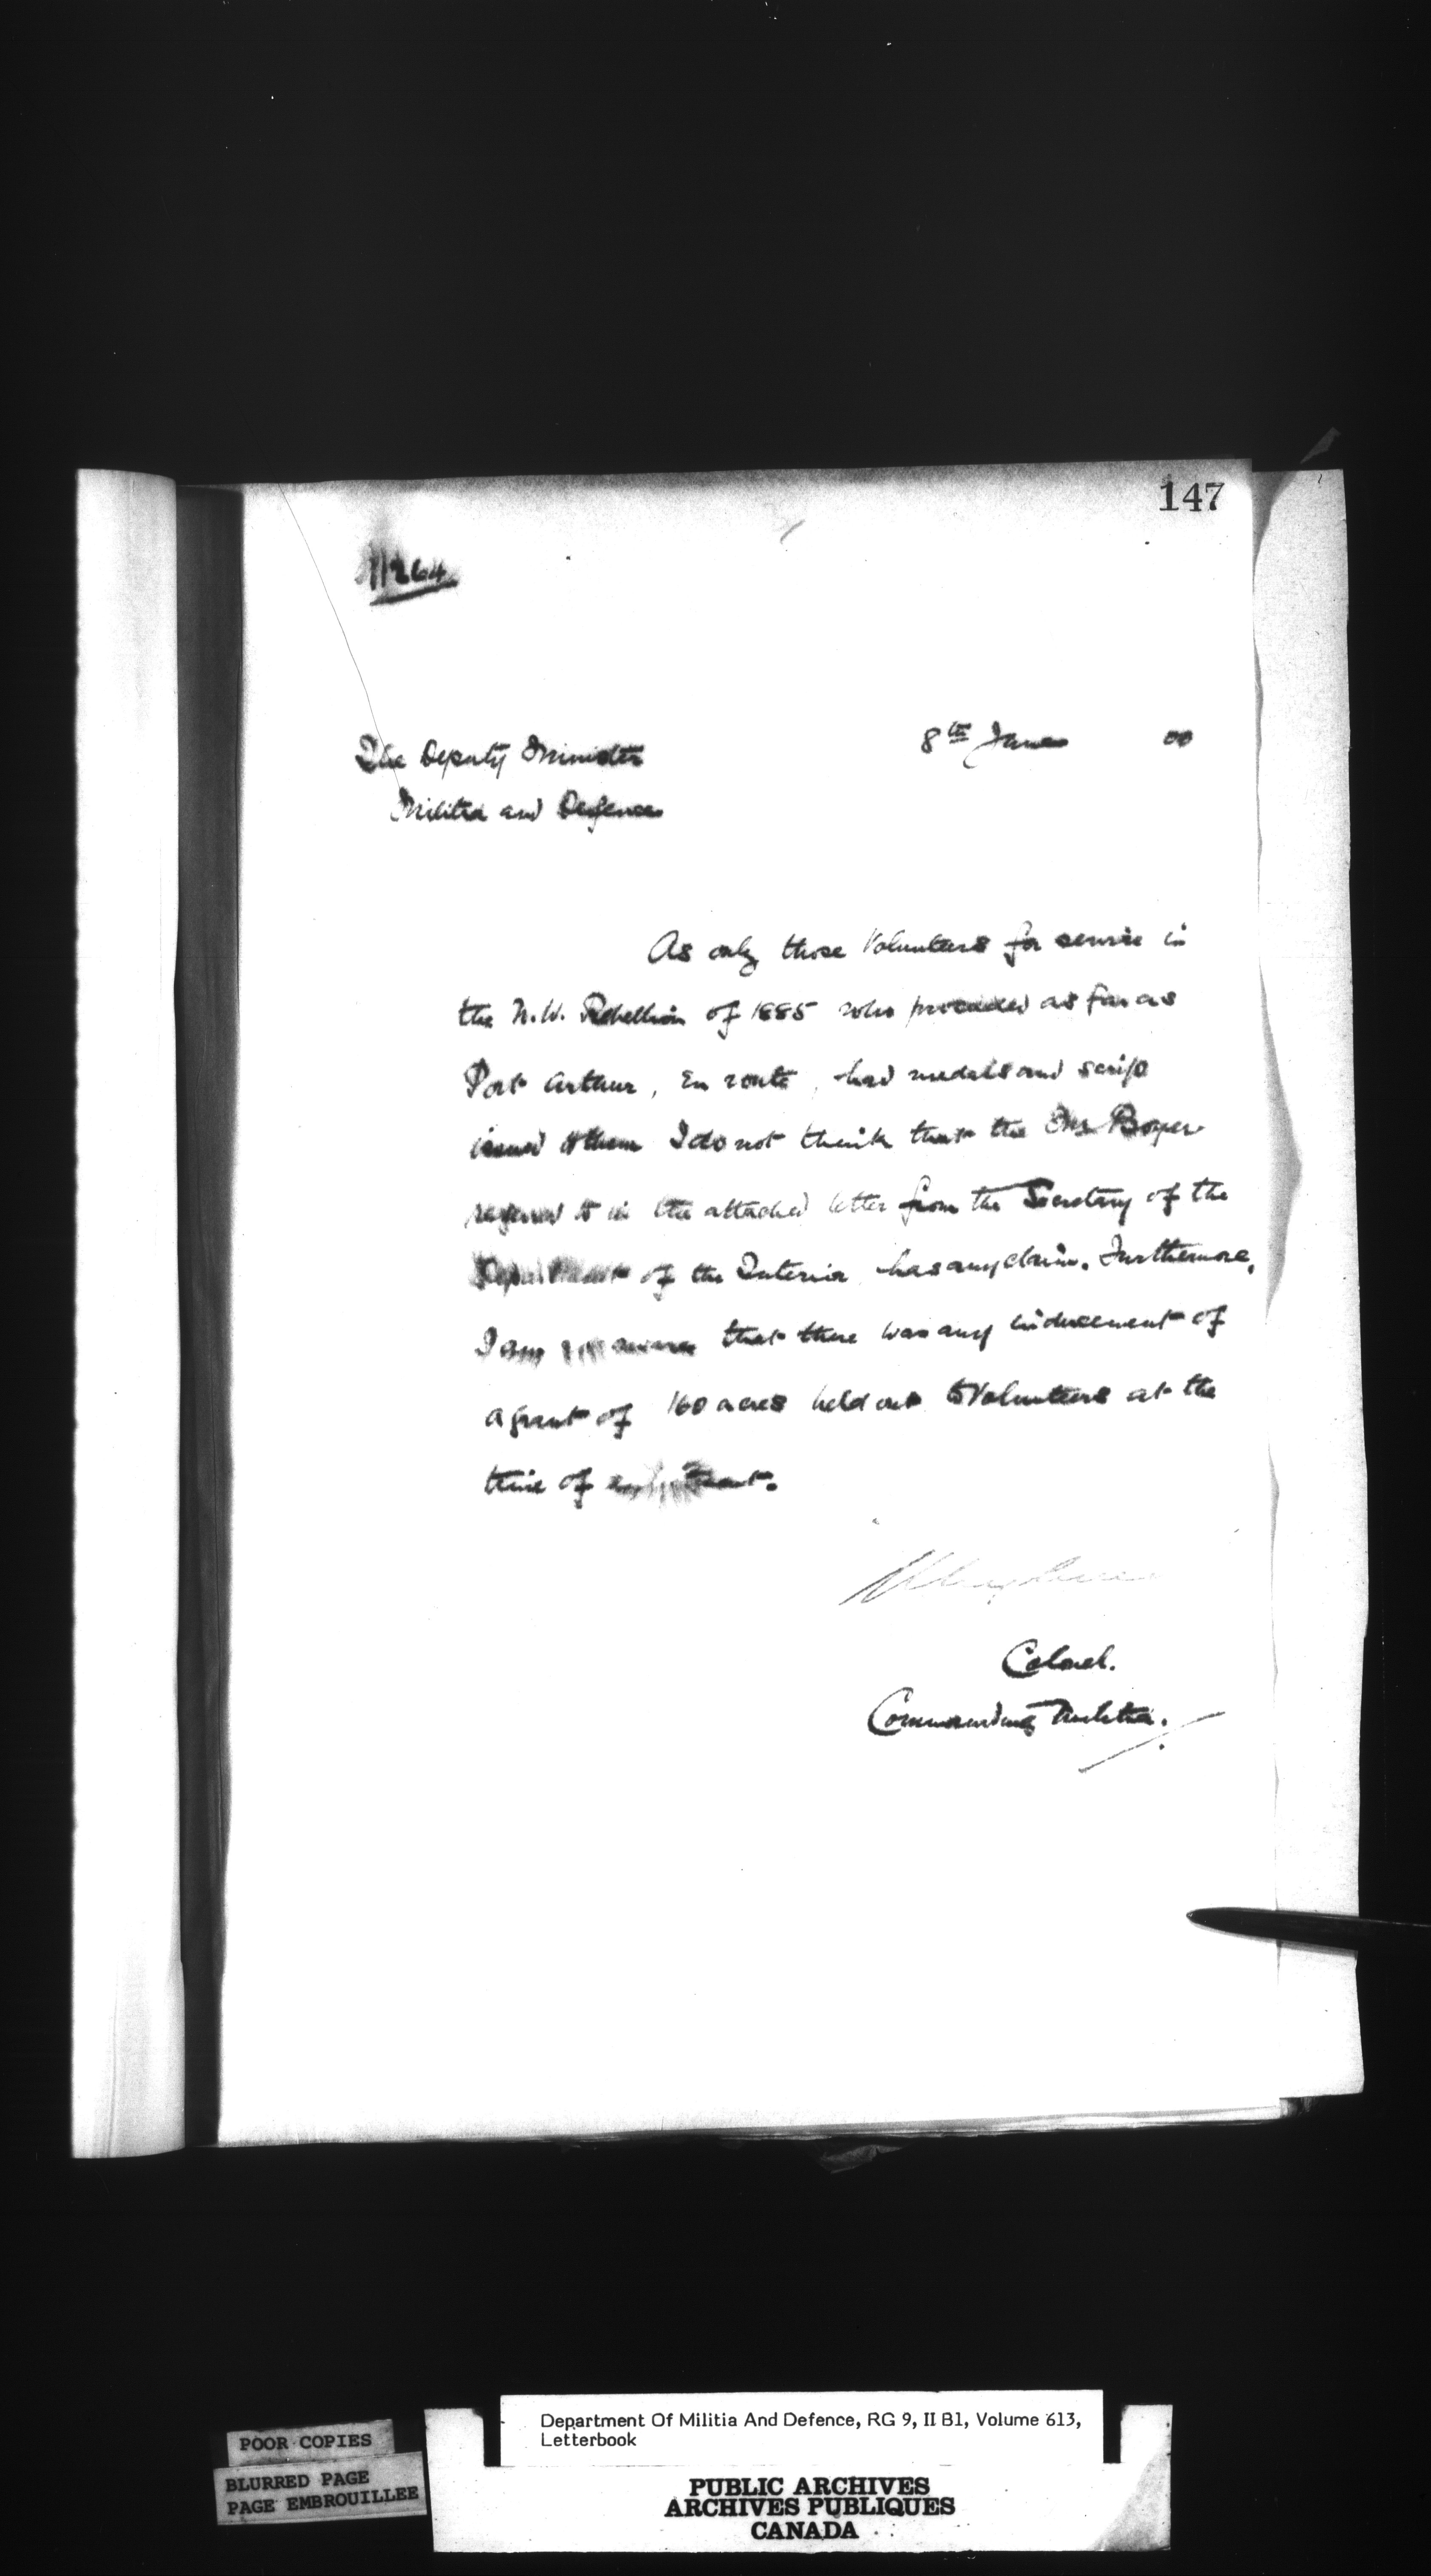 147
11264
The Deputy Minister
8th June 00
Militia and Defence
As only those Volunteers for service in
the N.W. Rebellion of 1885 who proceeded as far as
Port Arthur, en route, had medals and scrip
issued to them I do not think that the Mr Boyer
referred to in the attached letter from the Secretary of the
Department of the Interior has any claim. Furthermore,
I am not aware that there was any inducement of
a grant of 160 acres held out to Volunteers at the
time of enlistment.
Colonel.
Commanding Militia.
POOR COPIES
BLURRED PAGE
PAGE EMBROUILLEE
Department Of Militia And Defence, RG 9, II B1, Volume 613,
Letterbook
PUBLIC ARCHIVES
ARCHIVES PUBLIQUES
CANADA